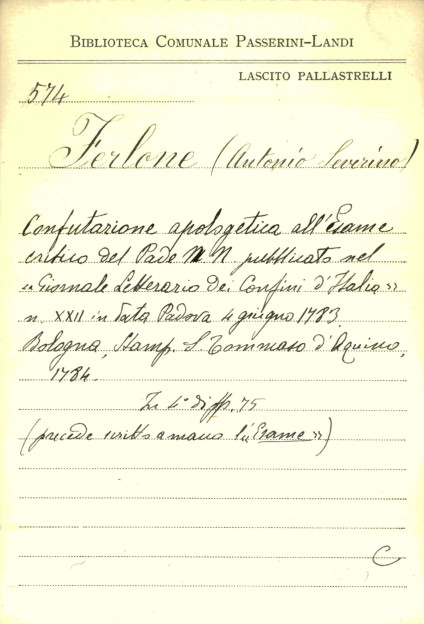 BIBLIOTECA COMUNALE PASSERINI-LANDI
LASCITO PALLASTRELLI
574
Ferlone (Antonio Severino)
Confutazione apologetica all'Esame
critico del Pade N N pubblicato nel
«Giornale Letterario dei Confini d'Italia»
n. XXII in data Padova 4 giugno 1783.
Bologna, Stamp. S. Tommaso d'Aquino,
1784.
In 4° di pp. 75
(precede scritto a mano l'«Esame»)
C